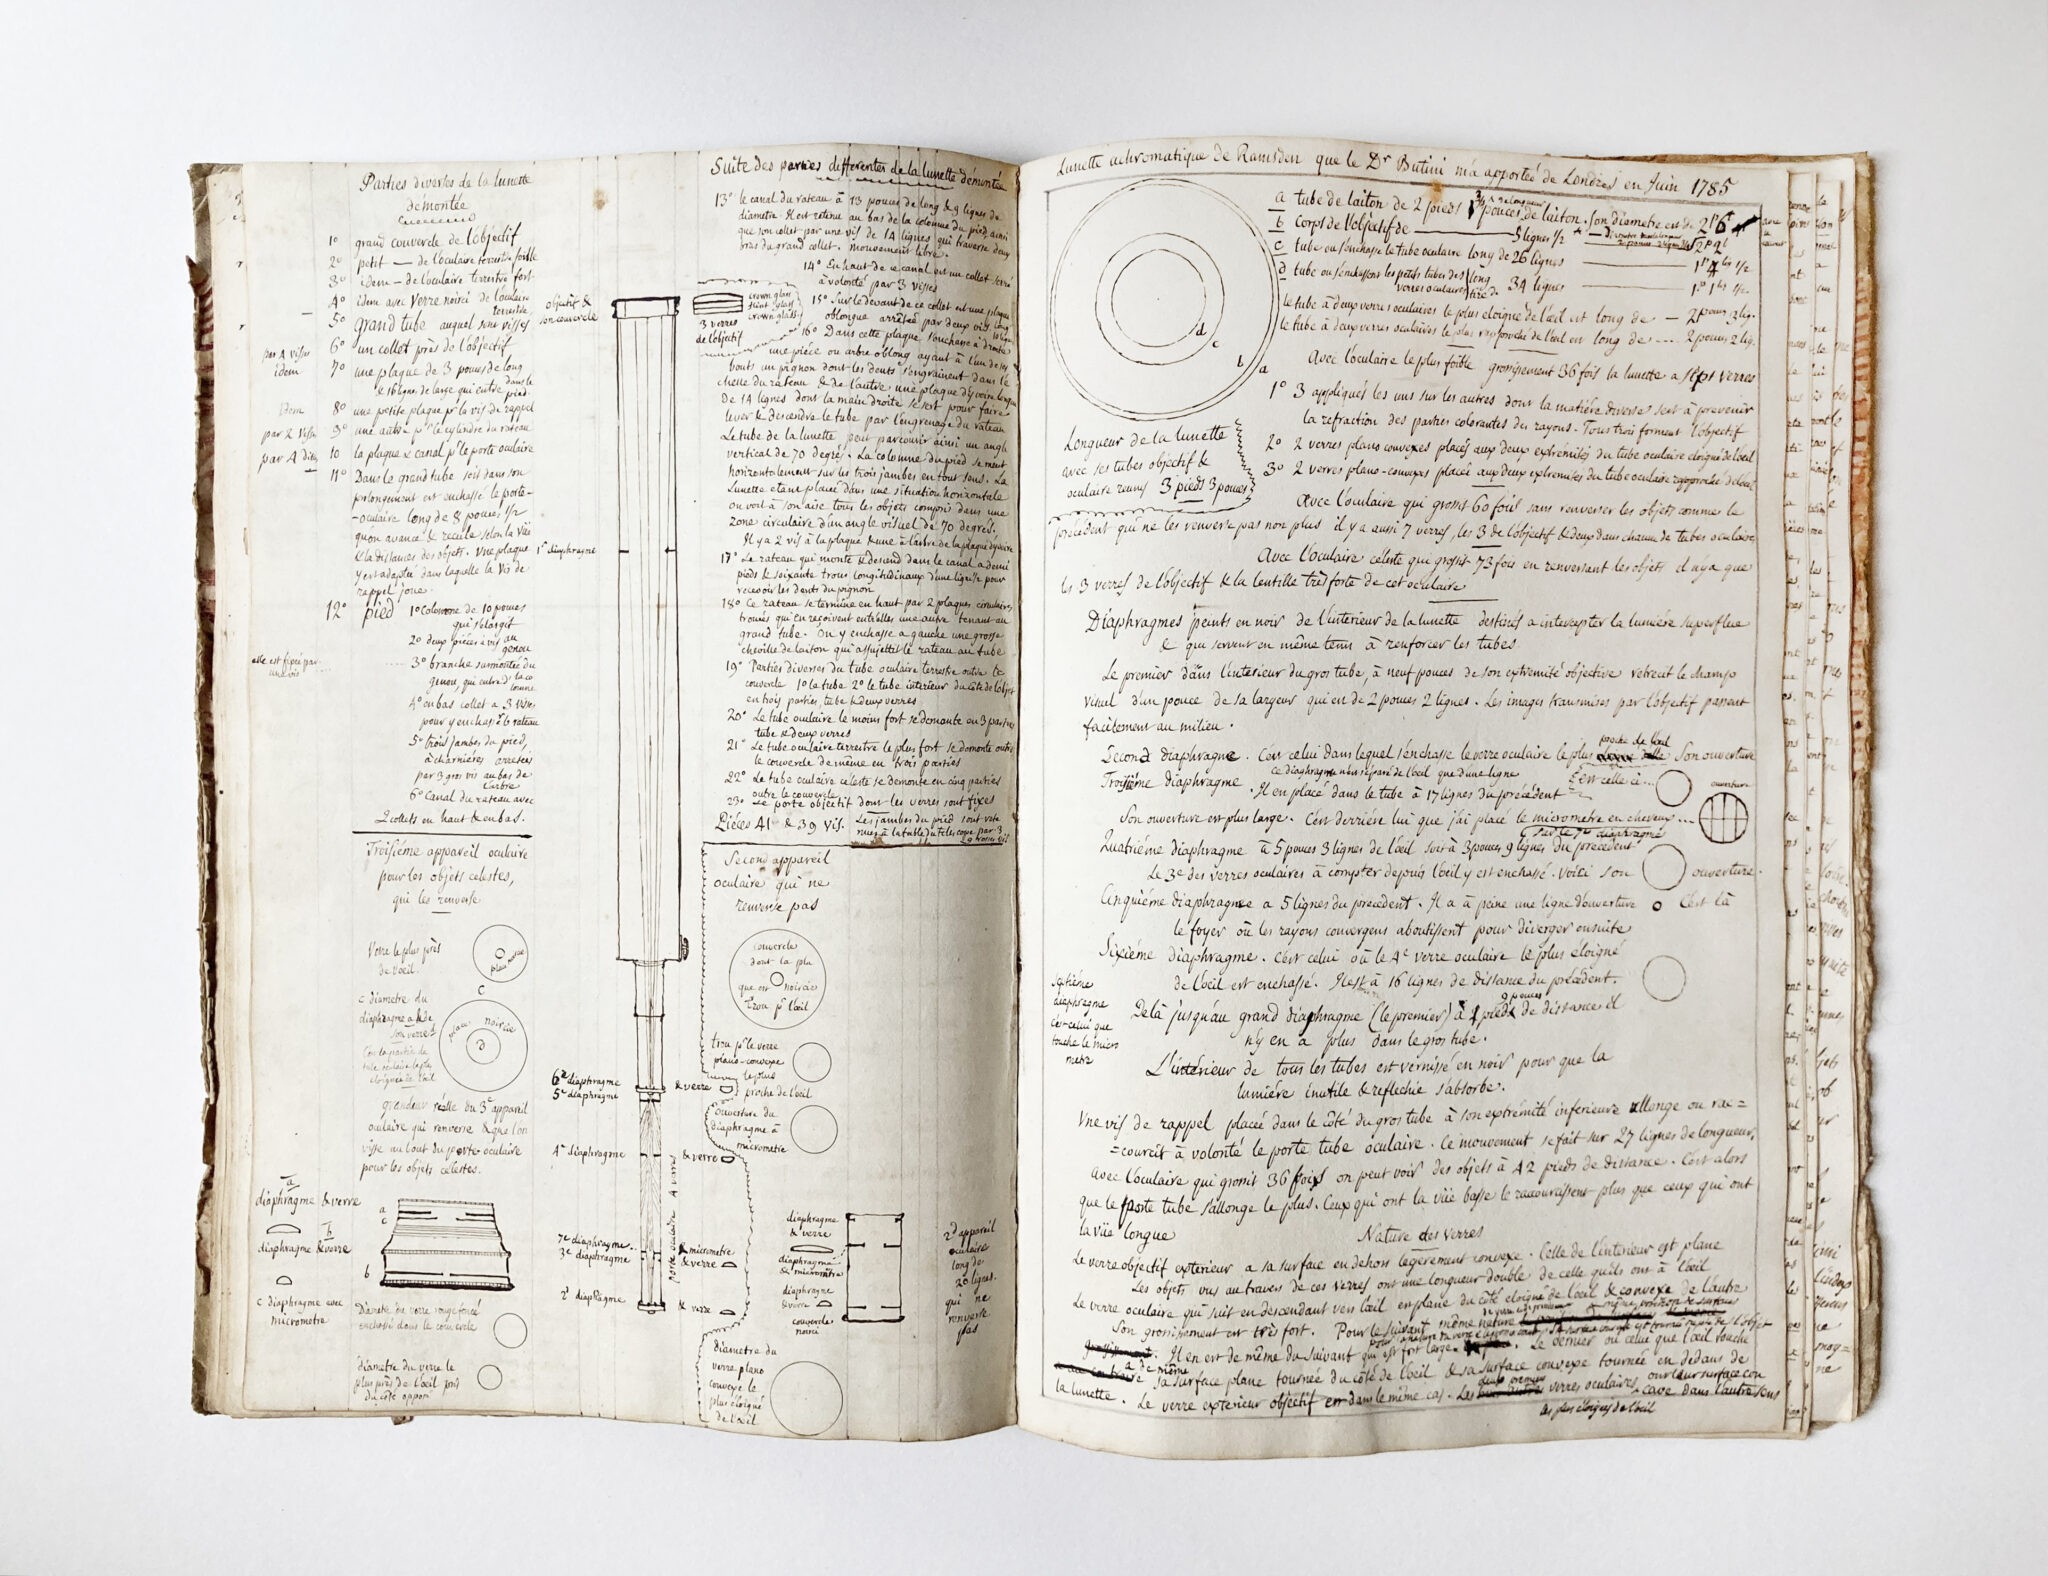 Parties diverses de la lunette
demontée
1° grand couvercle de l'objectif
2° petit — de l'oculaire terrestre foible
3° idem — de l'oculaire terrestre fort
4° idem avec verre noirci de l'oculaire
terrestre
5° grand tube auquel sont vissés
par 4 visses 6° un collet près de l'objectif
idem 7° une plaque de 3 pouces de long
& 16 lignes de large qui entre dans le
pied
idem 8° une petite plaque pr la vis de rappel
par 2 visses 9° une autre pr le cylindre du rateau
par 4 10 la plaque & canal pr le porte oculaire
11° Dans le grand tube soit dans son
prolongement est enchassé le porte-
-oculaire long de 8 pouces 1/2
qu'on avance & recule selon la vüe
& la distance des objets. Une plaque
y est adaptée dans laquelle la vis de
rappel joue.
12° pied 1° Colonne de 10 pouces
qui s'elargit
2° deux pièces à vis au
genou
elle est fixée par
une vis
3° branche surmontée du
genou, qui entre ds la co
lonne
4° en bas collet a 3 vises
pour y enchasser le rateau
5° trois jambes du pied,
à charnières arretées
par 3 gros vis au bas de
l'arbre
6° Canal du rateau avec
2 collets en haut & en bas.
Troisiéme appareil oculaire
pour les objets celestes,
qui les renverse
Verre le plus près
de l'oeil.
plan noircie
C
c diametre du
diaphragme a & de
son verre d
C'est la partie du
tube oculaire la plus
éloignée de l'oeil
plan noircie
d
grandeur réelle du 3e appareil
oculaire qui renverse & que l'on
visse au bout du porte oculaire
pour les objets célestes.
a
diaphragme & verre
b
diaphragme & verre
c diaphragme avec
micrometre
a
c
b
Diametre du verre rouge foncé
enchassé dans le couvercle
diametre du verre le
plus près de l'oeil pris
du côté opposé
objectif &
son couvercle
crown glass
flint glass
crown glass
3 verres
de l'objectif
1er diaphragme
6e diaphragme
5e diaphragme
& verre
4e diaphragme
& verre
porte oculaire 4 verres
7e diaphragme
3e diaphragme
& micrometre
& verre
2d diaphragme
& verre
Suite des parties differentes de la lunette démontée
13° le canal du rateau à 13 pouces de long & 9 lignes de
diametre. Il est retenu au bas de la colonne du pied, ainsi
que son collet par une vis de 14 lignes qui traverse deux
bras du grand collet. mouvement libre.
14° En haut de ce canal est un collet serré
à volonté par 3 visses
15° Sur le devant de ce collet est une plaque
oblongue arrêtée par deux vis
16° Dans cette plaque s'enchasse à droite
une piéce ou arbre oblong ayant à l'un de ses
bouts un pignon dont les dents s'engrainent dans l'é
chelle du rateau & de l'autre une plaque d'yvoire longue
de 14 lignes dont la main droite se sert pour faire
lever & descendre le tube par l'engrenage du rateau
Le tube de la lunette peut parcourir ainsi un angle
vertical de 70 degrés. La colonne du pied se meut
horizontalement sur les trois jambes en tout sens. La
Lunette etant placée dans une situation horizontale
on voit à son aise tous les objets compris dans une
zone circulaire d'un angle visuel de 70 degrés.
Il y a 2 vis à la plaque & une à l'arbre de la plaque d'yvoire
17° Le rateau qui monte & descend dans le canal a demi
pieds & soixante trous longitudinaux d'une ligne pour
recevoir les dents du pignon
18° Ce rateau se termine en haut par 2 plaques circulaires
trouées qui en reçoivent entr'elles une autre tenant au
grand tube. On y enchasse a gauche une grosse
cheville de laiton qui assujettit le rateau au tube
19° Parties diverses du tube oculaire terrestre outre le
couvercle 1° le tube 2° le tube interieur du côté de l'objet
en trois parties, tube & deux verres
20° Le tube oculaire le moins fort se demonte en 3 parties
tube & deux verres
21° Le tube oculaire terrestre le plus fort se demonte outre
le couvercle de même en trois parties
22° Le tube oculaire celeste se demonte en cinq parties
outre le couvercle
23° Le porte objectif dont les verres sont fixes
Piéces 41 & 39 vis. Les jambes du pied sont rete
nues à la table du telescope par 3
grosses vis
Second appareil
oculaire qui ne
renverse pas
couvercle
dont la pla
que est noircie
Trou pr l'oeil
trou pr le verre
plano-convexe
le plus
proche de l'oeil
ouverture du
diaphragme à
micrometre
diaphragme
& verre
diaphragme
& micromètre
diaphragme
& verre
couvercle
noirci
2d appareil
oculaire
long de
20 lignes.
qui ne
renverse
pas
diametre du
verre plano
convexe le
plus éloigné
de l'oeil
Lunette achromatique de Ramsden que le Dr Butini m'a apportée de Londres en Juin 1785
a tube de laiton de 2 pieds pouces de laiton. Son diametre est de 2p 6l
b corps de l'objectif de 5 lignes 1/2
c tube ou s'enchasse le tube oculaire long de 26 lignes
d tube ou s'enchassent les petits tubes des verres oculaires long tiré de 34 lignes
le tube à deux verres oculaires le plus eloigné de l'oeil est long de — 2 pouces 3 lig.
le tube à deux verres oculaires le plus rapproché de l'oeil est long de .... 2 pouces 2 lig.
d
c
b
a
Avec l'oculaire le plus foible grossissement 36 fois la lunette a sept verres
1° 3 appliqués les uns sur les autres dont la matiére diverse sert à prevenir
la refraction des parties colorantes des rayons. Tous trois forment l'objectif
2° 2 verres plano convexes placés aux deux extrémités du tube oculaire eloigné de l'oeil
3° 2 verres plano-convexes placés aux deux extremités du tube oculaire rapproché de l'oeil
Longueur de la lunette
avec ses tubes objectif &
oculaire reunis 3 pieds 3 pouces
Avec l'oculaire qui grossit 60 fois sans renverser les objets comme le
précedent qui ne les renverse pas non plus il y a aussi 7 verres, les 3 de l'objectif & deux dans chacun de tubes oculaires
Avec l'oculaire celeste qui grossit 73 fois en renversant les objets il n'y a que
les 3 verres de l'objectif & la lentille très forte de cet oculaire
Diaphragmes peints en noir de l'interieur de la lunette destinés a intercepter la lumière superflue
& qui servent en même tems à renforcer les tubes
Le premier dans l'interieur du gros tube, à neuf pouces de son extremité objective retrecit le champ
visuel d'un pouce de sa largeur qui est de 2 pouces 2 lignes. Les images transmises par l'objectif passent
facilement au milieu.
Second diaphragme. C'est celui dans lequel s'enchasse le verre oculaire le plus proche de l'oeil Son ouverture
ce diaphragme n'est séparé de l'oeil que d'une ligne est celle ci...
Troisiéme diaphragme. Il est placé dans le tube à 17 lignes du précédent
ouverture
Son ouverture est plus large. C'est derrière lui que j'ai placé le micrometre en cheveux ...
sur le 7e diaphragme
Quatriéme diaphragme à 5 pouces 3 lignes de l'oeil soit à 3 pouces 9 lignes du precedent
Le 3e des verres oculaires à compter depuis l'oeil y est enchassé. Voici son ouverture.
Cinquiéme diaphragme a 5 lignes du precedent. Il a à peine une ligne d'ouverture C'est là
le foyer où les rayons convergens aboutissent pour diverger ensuite
Sixiéme diaphragme. C'est celui où le 4e verre oculaire le plus éloigné
de l'oeil est enchassé. Il est à 16 lignes de distance du précedent.
septiéme
diaphragme
c'est celui que
touche le micro
metre
Delà jusqu'au grand diaphragme (le premier) à 1 pied 9 pouces de distance il
n'y en a plus dans le gros tube.
L'intérieur de tous les tubes est vernissé en noir pour que la
lumière inutile & reflechie s'absorbe.
Une vis de rappel placée dans le côté du gros tube à son extrémité inferieure allonge ou rac=
=courcit à volonté le porte tube oculaire. Ce mouvement se fait sur 27 lignes de longueur,
avec l'oculaire qui grossit 36 fois on peut voir des objets à 42 pieds de distance. C'est alors
que le porte tube s'allonge le plus. Ceux qui ont la vüe basse le raccourcissent plus que ceux qui ont
la vüe longue
Nature des verres
Le verre objectif exterieur a sa surface en dehors légèrement convexe. Celle de l'interieur est plane
Les objets vus au travers de ces verres ont une longueur double de celle qu'ils ont à l'oeil
Le verre oculaire qui suit en descendant vers l'oeil est plane du côté eloigné de l'oeil & convexe de l'autre
Son grossissement est très fort. Pour le suivant même nature
Il en est de même du suivant qui est fort large. Le dernier ou celui que l'oeil touche
a de même sa surface plane tournée du côté de l'oeil & sa surface convexe tournée en dedans de
la lunette. Le verre exterieur objectif est dans le même cas. Les verres oculaires ont leur surface con
cave dans l'autre sens
les plus éloignés de l'oeil